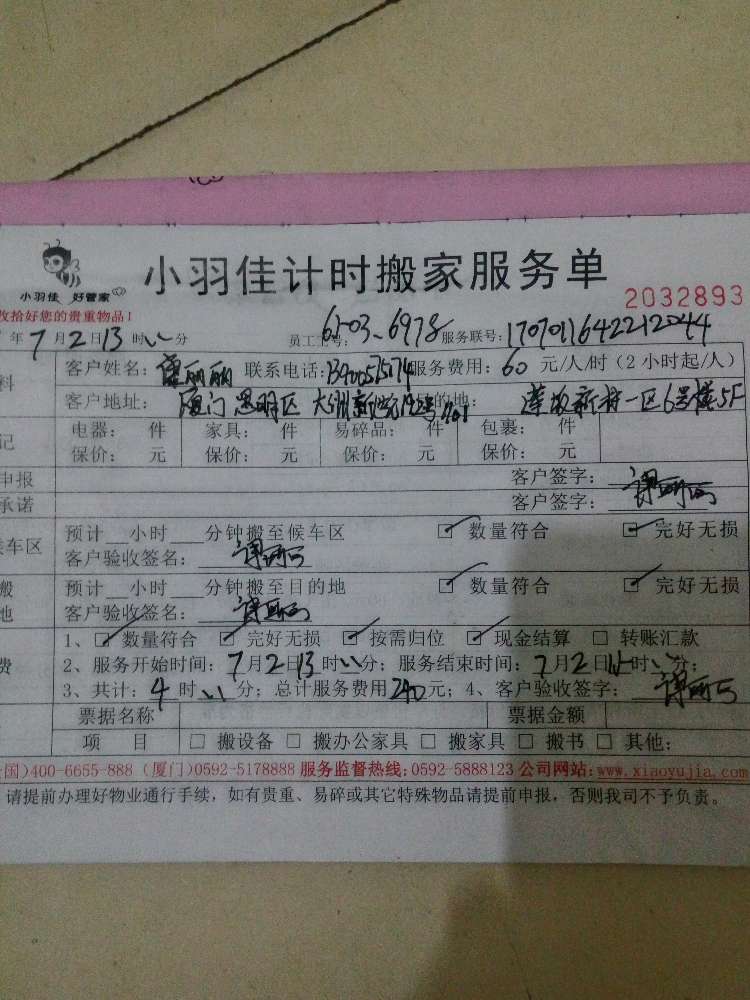 小羽佳 好管家
小羽佳计时搬家服务单
2032893
收拾好您的贵重物品！
年7月2日13时 分 员工 号：6503、6978 服务联号：1707011642212044
客户姓名： 丽丽 联系电话： 服务费用：60 元/人/时（2小时起/人）
客户地址：厦门思明区 的地： 新村一区6号楼5F
记 电器： 件 家具： 件 易碎品： 件 包裹： 件
保价： 元 保价： 元 保价： 元 保价： 元
申报 客户签字：
承诺 客户签字：
候车区 预计__小时___分钟搬至候车区 ☑ 数量符合 ☑ 完好无损
客户验收签名：
搬 预计__小时___分钟搬至目的地 ☑ 数量符合 ☑ 完好无损
地 客户验收签名：
费 1、☑ 数量符合 ☑ 完好无损 ☑ 按需归位 ☑ 现金结算 □ 转账汇款
2、服务开始时间：7月2日13时 分；服务结束时间：7月2日 时 分；
3、共计：4时 分；总计服务费用240元；4、客户验收签字：
票据名称 票据金额
项 目 □ 搬设备 □ 搬办公家具 □ 搬家具 □ 搬书 □ 其他：
国）400-6655-888（厦门）0592-5178888 服务监督热线：0592-5888123 公司网站：www.xiaoyujia.com
请提前办理好物业通行手续，如有贵重、易碎或其它特殊物品请提前申报，否则我司不予负责。